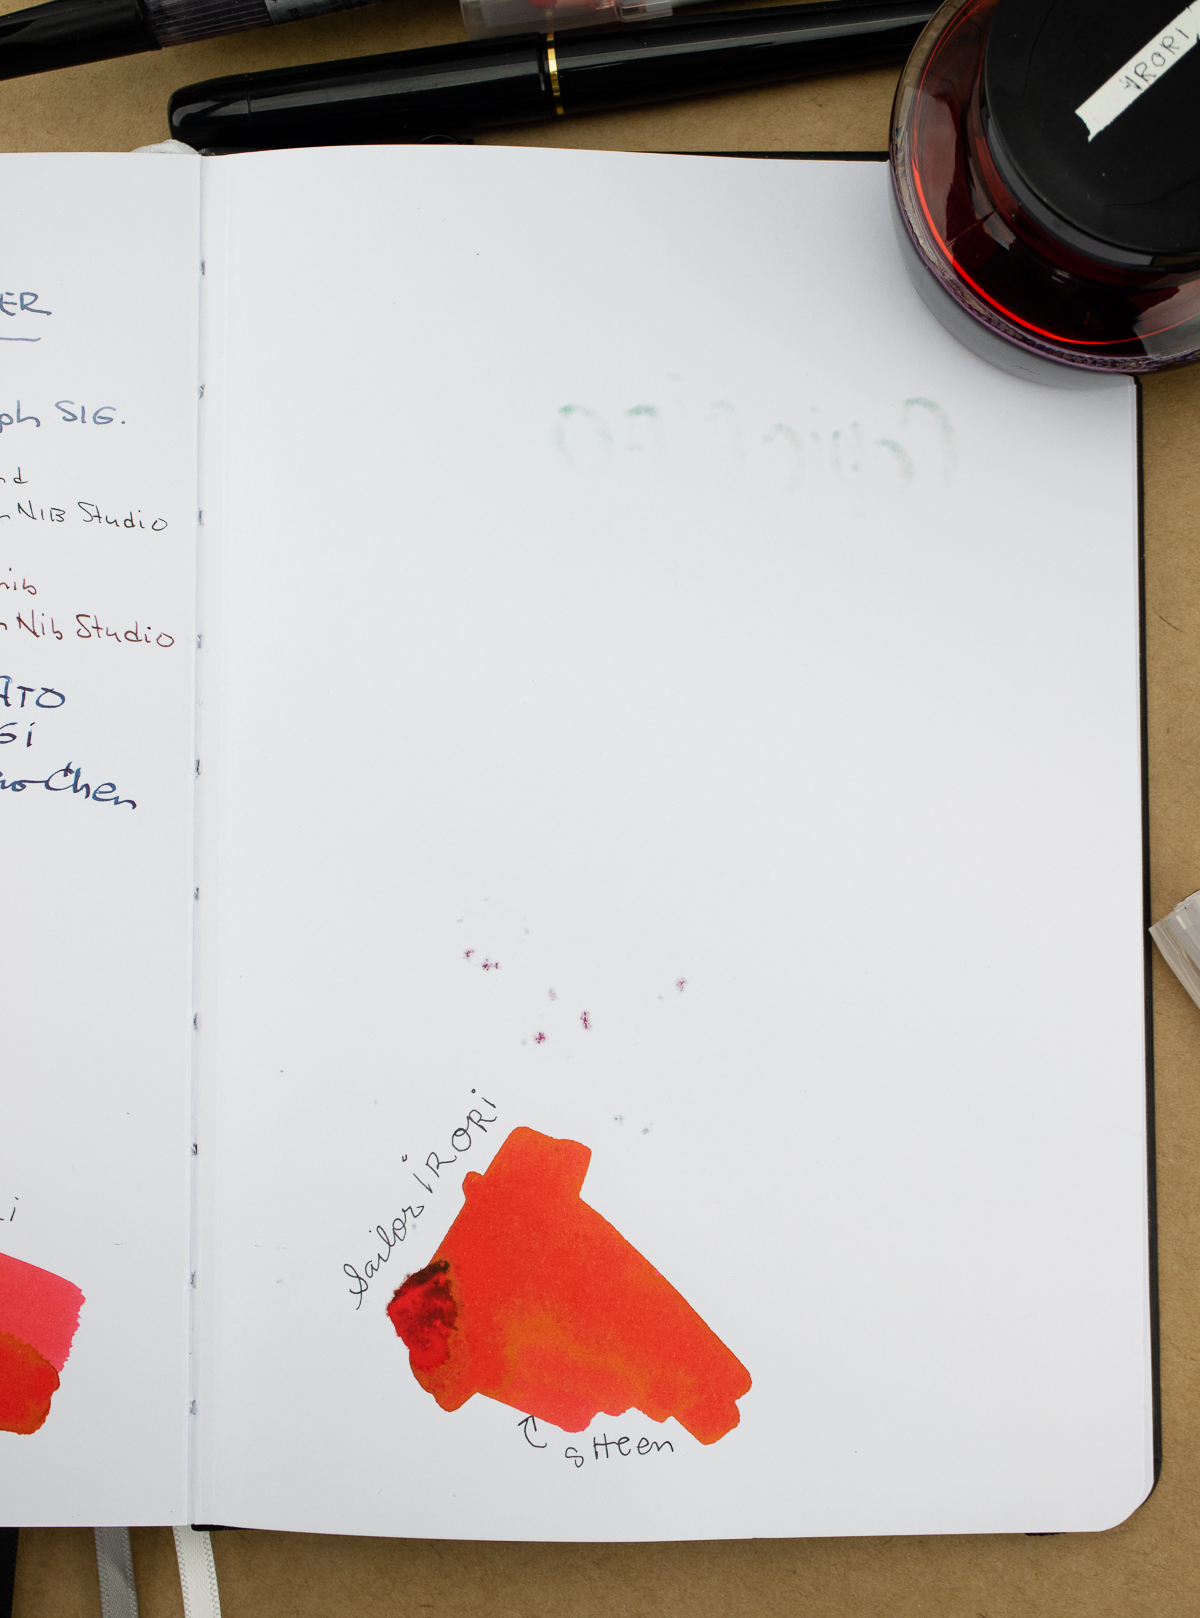 IRORI
ER
ph SIG.
nd
n NIB Studio
nib
n Nib Studio
ATO
Gi
ao-Chen
Sailor IRORI
i
SHeen